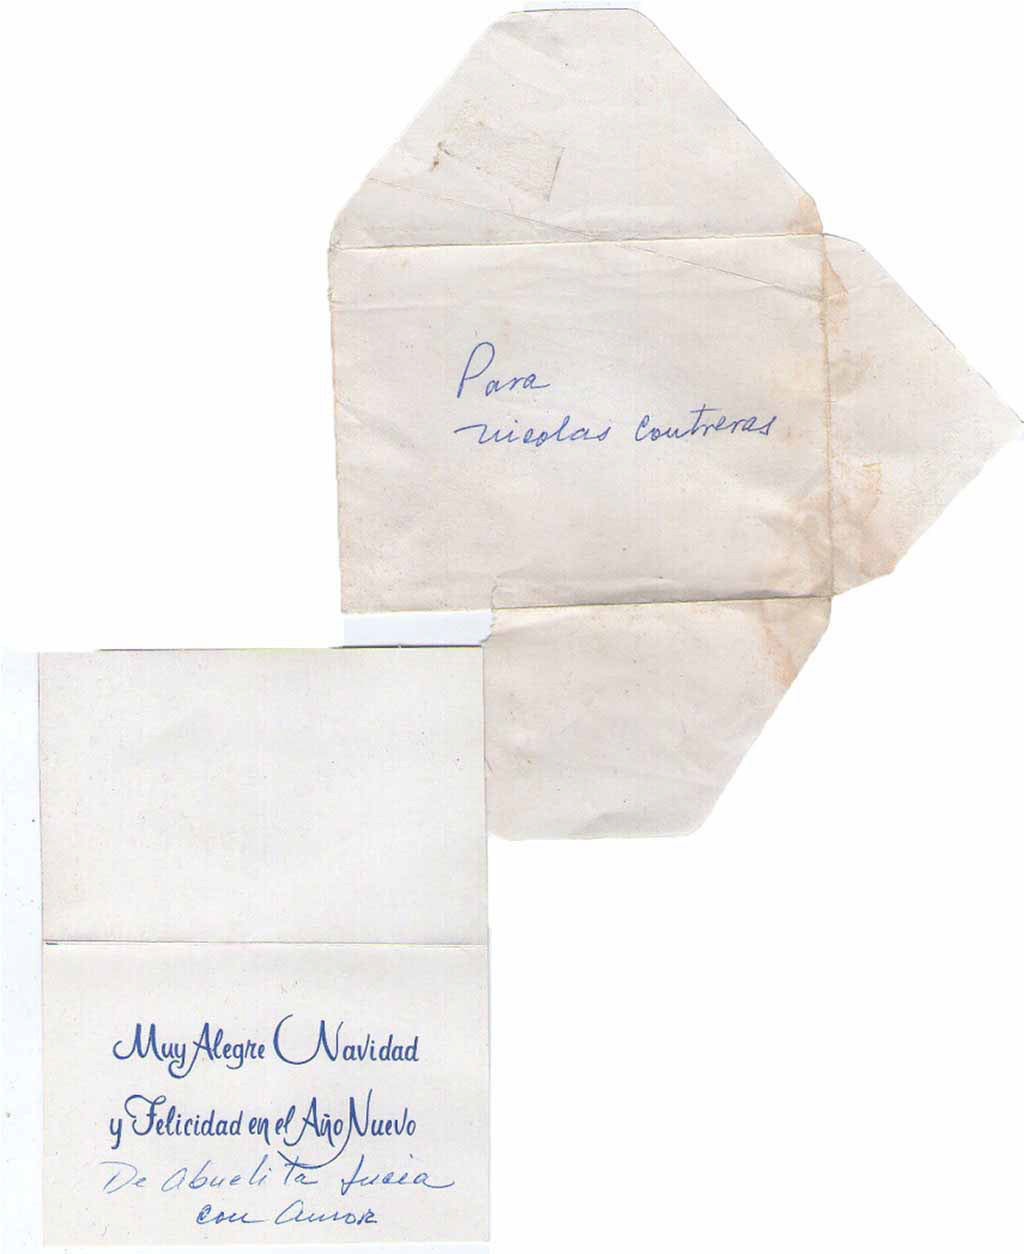 Para
Nicolas Contreras
Muy Alegre Navidad
y Felicidad en el Año Nuevo
De Abuelita Lucia
con Amor